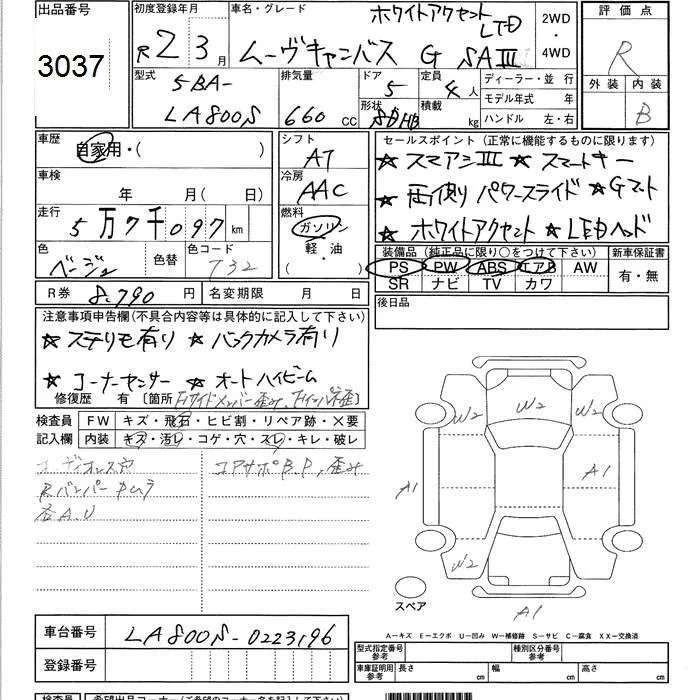 出品番号
3037
初度登録年月
R 2 3 月
車名・グレード
ホワイトアクセント LTD
ムーヴキャンバス G SAⅢ
2WD
・
4WD
評価点
R
外装 内装
B
型式
5BA-
LA800S
排気量
660 cc
ドア
5
形状
5DHB
定員
4 人
積載
kg
ディーラー・並 行
モデル年式 年
ハンドル 左・右
車歴
自家用・( )
車検
年 月(日)
走行
5万7千097 km
色
ベージュ
色替
色コード
T32
R券 8,790 円
名変期限 月 日
シフト
AT
冷房
AAC
燃料
ガソリン
軽・油
( )
セールスポイント (正常に機能するものに限ります)
★ スマアシⅢ ★ スマートキー
★ 両側パワースライド ★ Gマット
★ ホワイトアクセント ★ LEDヘッド
装備品 (純正品に限り○をつけて下さい)
PS PW ABS エアB AW
SR ナビ TV カワ
新車保証書
有・無
後日品
注意事項申告欄(不具合内容等は具体的に記入して下さい)
★ ステリモ有り ★ バックカメラ有り
★ コーナーセンサー ★ オートハイビーム
修復歴 有 〔箇所 〕
検査員
記入欄
FW キズ・飛石・ヒビ割・リペア跡・×要
内装 キズ・汚レ・コゲ・穴・スレ・キレ・破レ
Rバンパー
各A.U
コアサポB.P,歪み
W2 W2 W2
A1 A1
W2 W2
A1
スペア
A-キズ E-エクボ U-凹み W-補修跡 S-サビ C-腐食 XX-交換済
車台番号 LA800S-0223196
登録番号
型式指定番号
参考
種別区分番号
参考
車庫証明用
参考
長さ cm 幅 cm 高さ cm
検査員
希望出品コーナー(ご希望のコーナー名を記入して下さい)